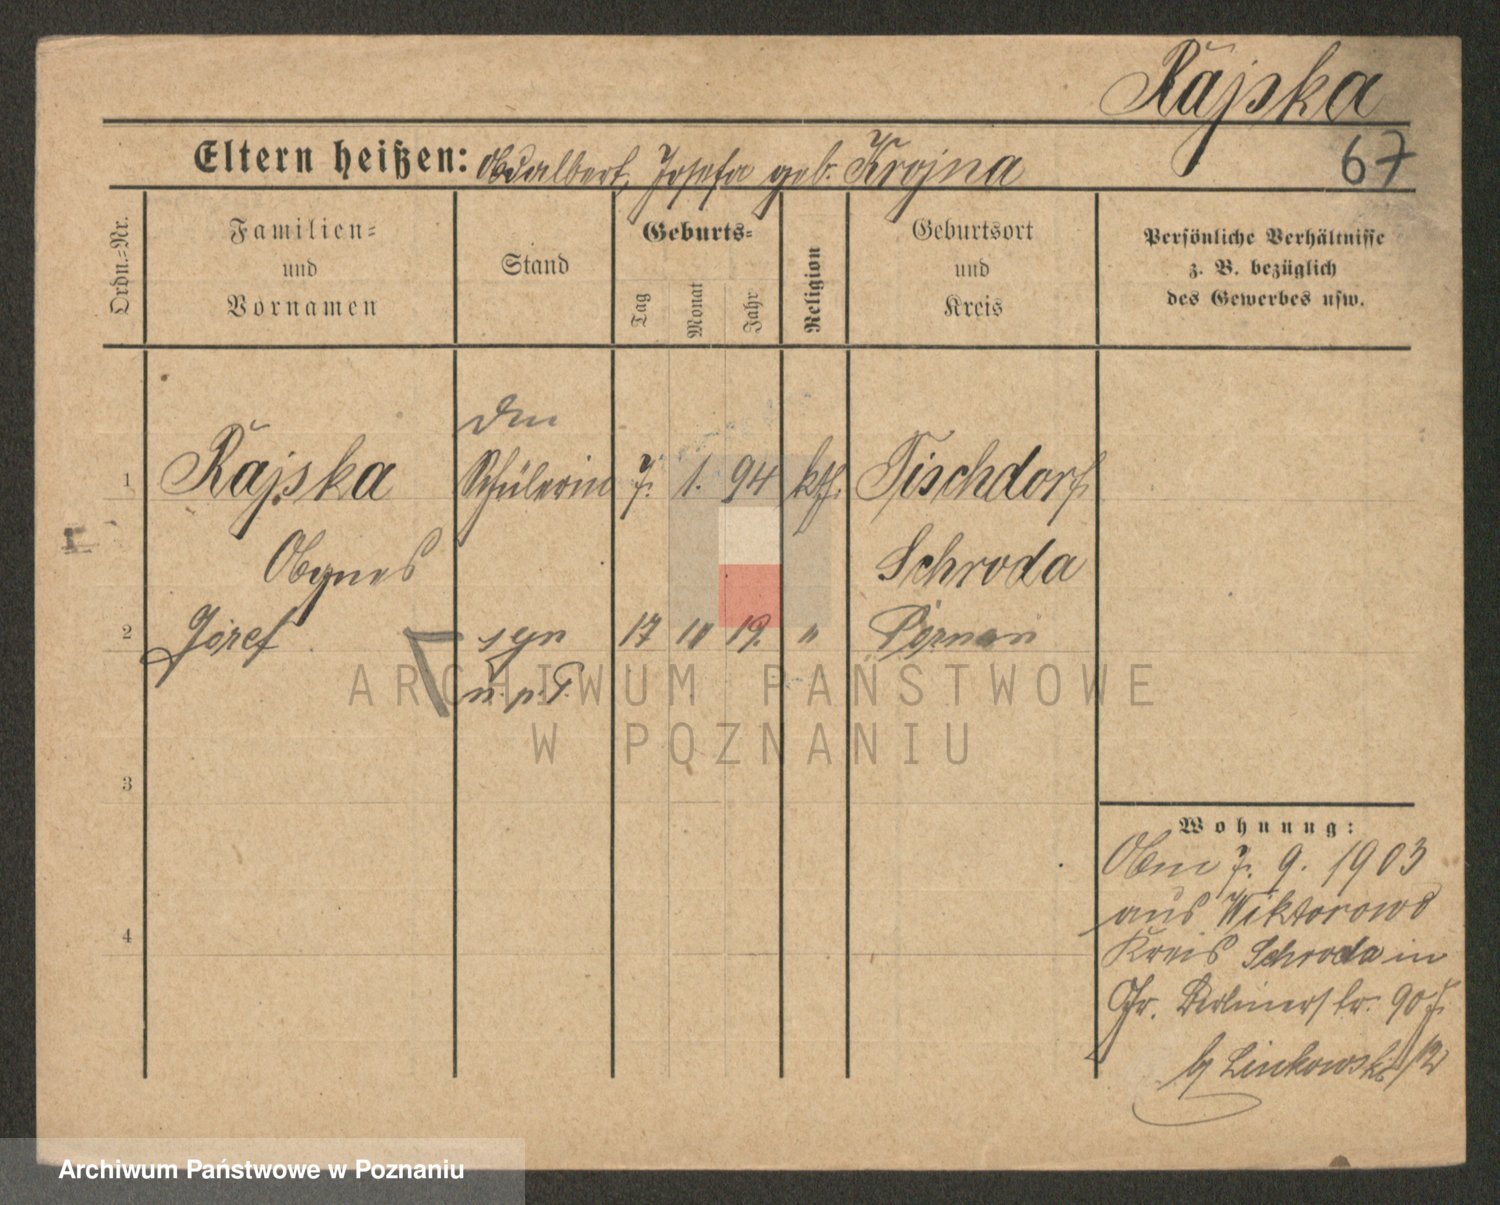 Rajska
67
Eltern heißen: Adalbert, Josefa geb. Krojna
Ordn.-Nr.
Familien-
und
Vornamen
Stand
Geburts-
Tag
Monat
Jahr
Religion
Geburtsort
und
Kreis
Persönliche Verhältnisse
z. B. bezüglich
des Gewerbes usw.
1 Rajska Schülerin 7. 1. 94 kth. Tischdorf
Agnes Schroda
2 Józef syn 17 10 19. "
n. p. T.
3
4
Wohnung:
Am 7. 9. 1903
aus Wiktorowo
Kreis Schroda in
Gr. Berlinerstr. 90
b/ Linkowski
ARCHIWUM PAŃSTWOWE
W POZNANIU
Archiwum Państwowe w Poznaniu